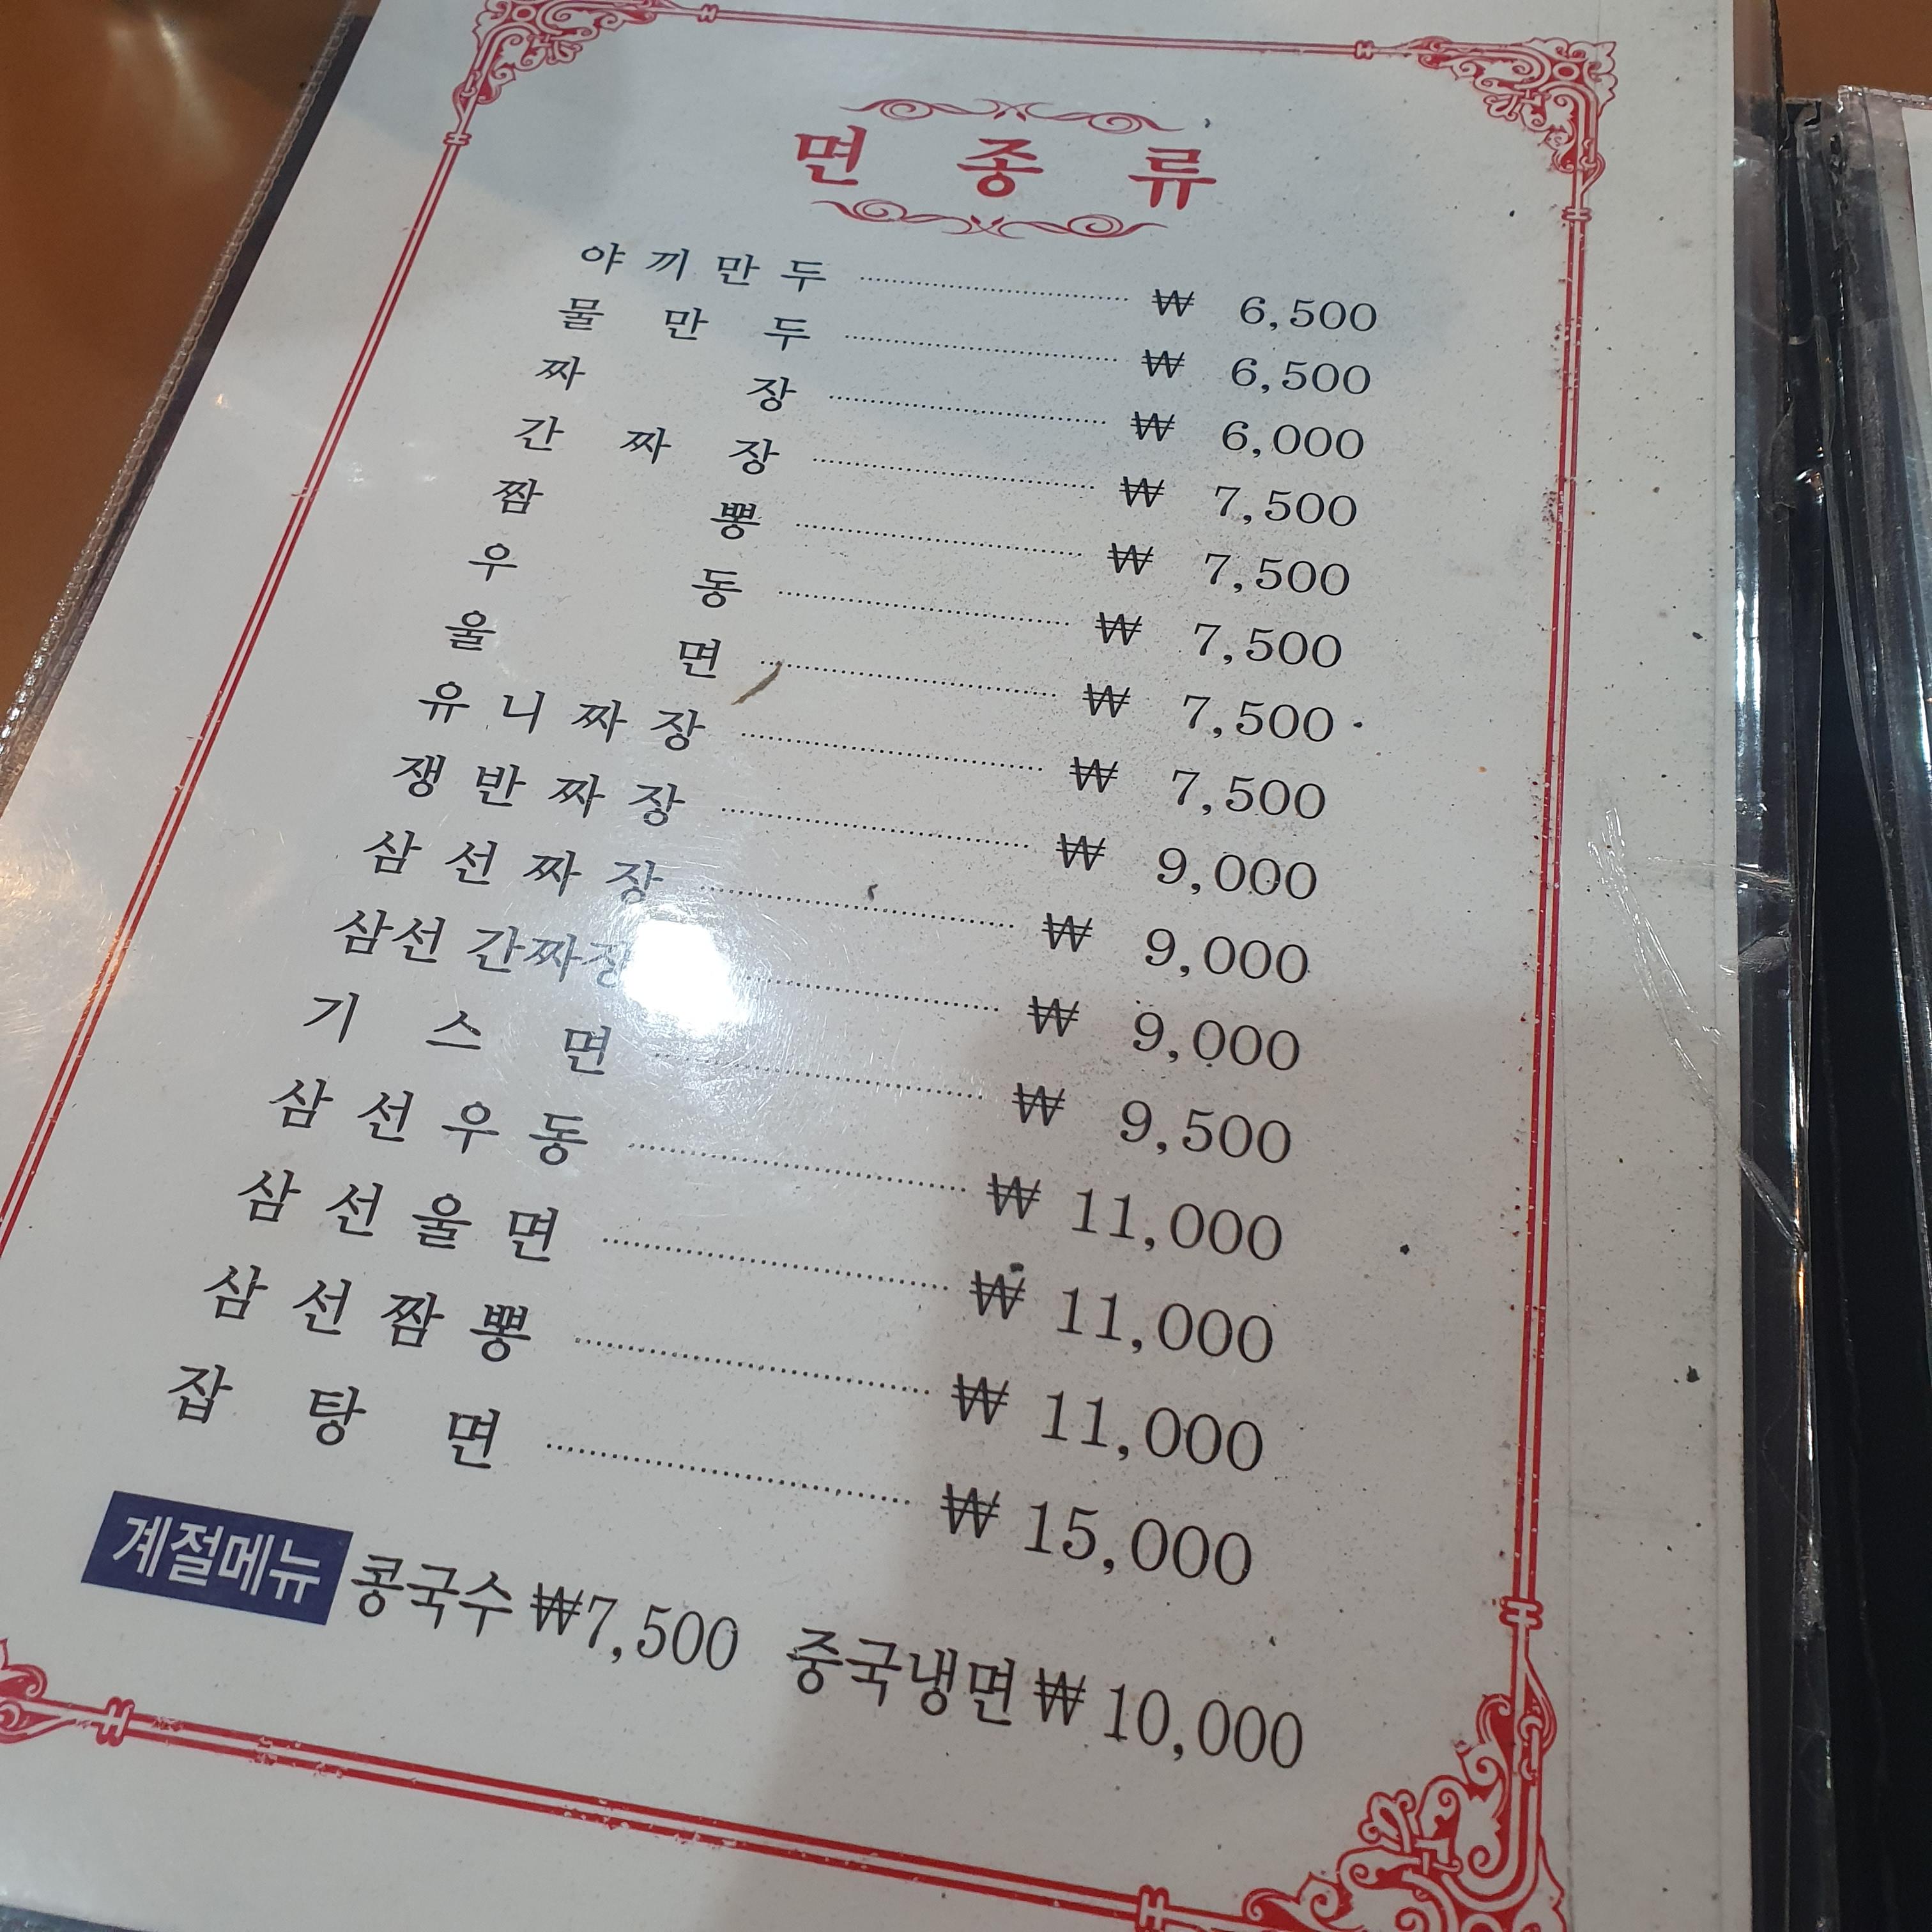 면 종 류
야 끼 만 두 ₩ 6,500
물 만 두 ₩ 6,500
짜 장 ₩ 6,000
간 짜 장 ₩ 7,500
짬 뽕 ₩ 7,500
우 동 ₩ 7,500
울 면 ₩ 7,500
유 니 짜 장 ₩ 7,500
쟁 반 짜 장 ₩ 9,000
삼 선 짜 장 ₩ 9,000
삼선 간짜장 ₩ 9,000
기 스 면 ₩ 9,500
삼 선 우 동 ₩ 11,000
삼 선 울 면 ₩ 11,000
삼 선 짬 뽕 ₩ 11,000
잡 탕 면 ₩ 15,000
계절메뉴 콩국수 ₩7,500 중국냉면 ₩ 10,000